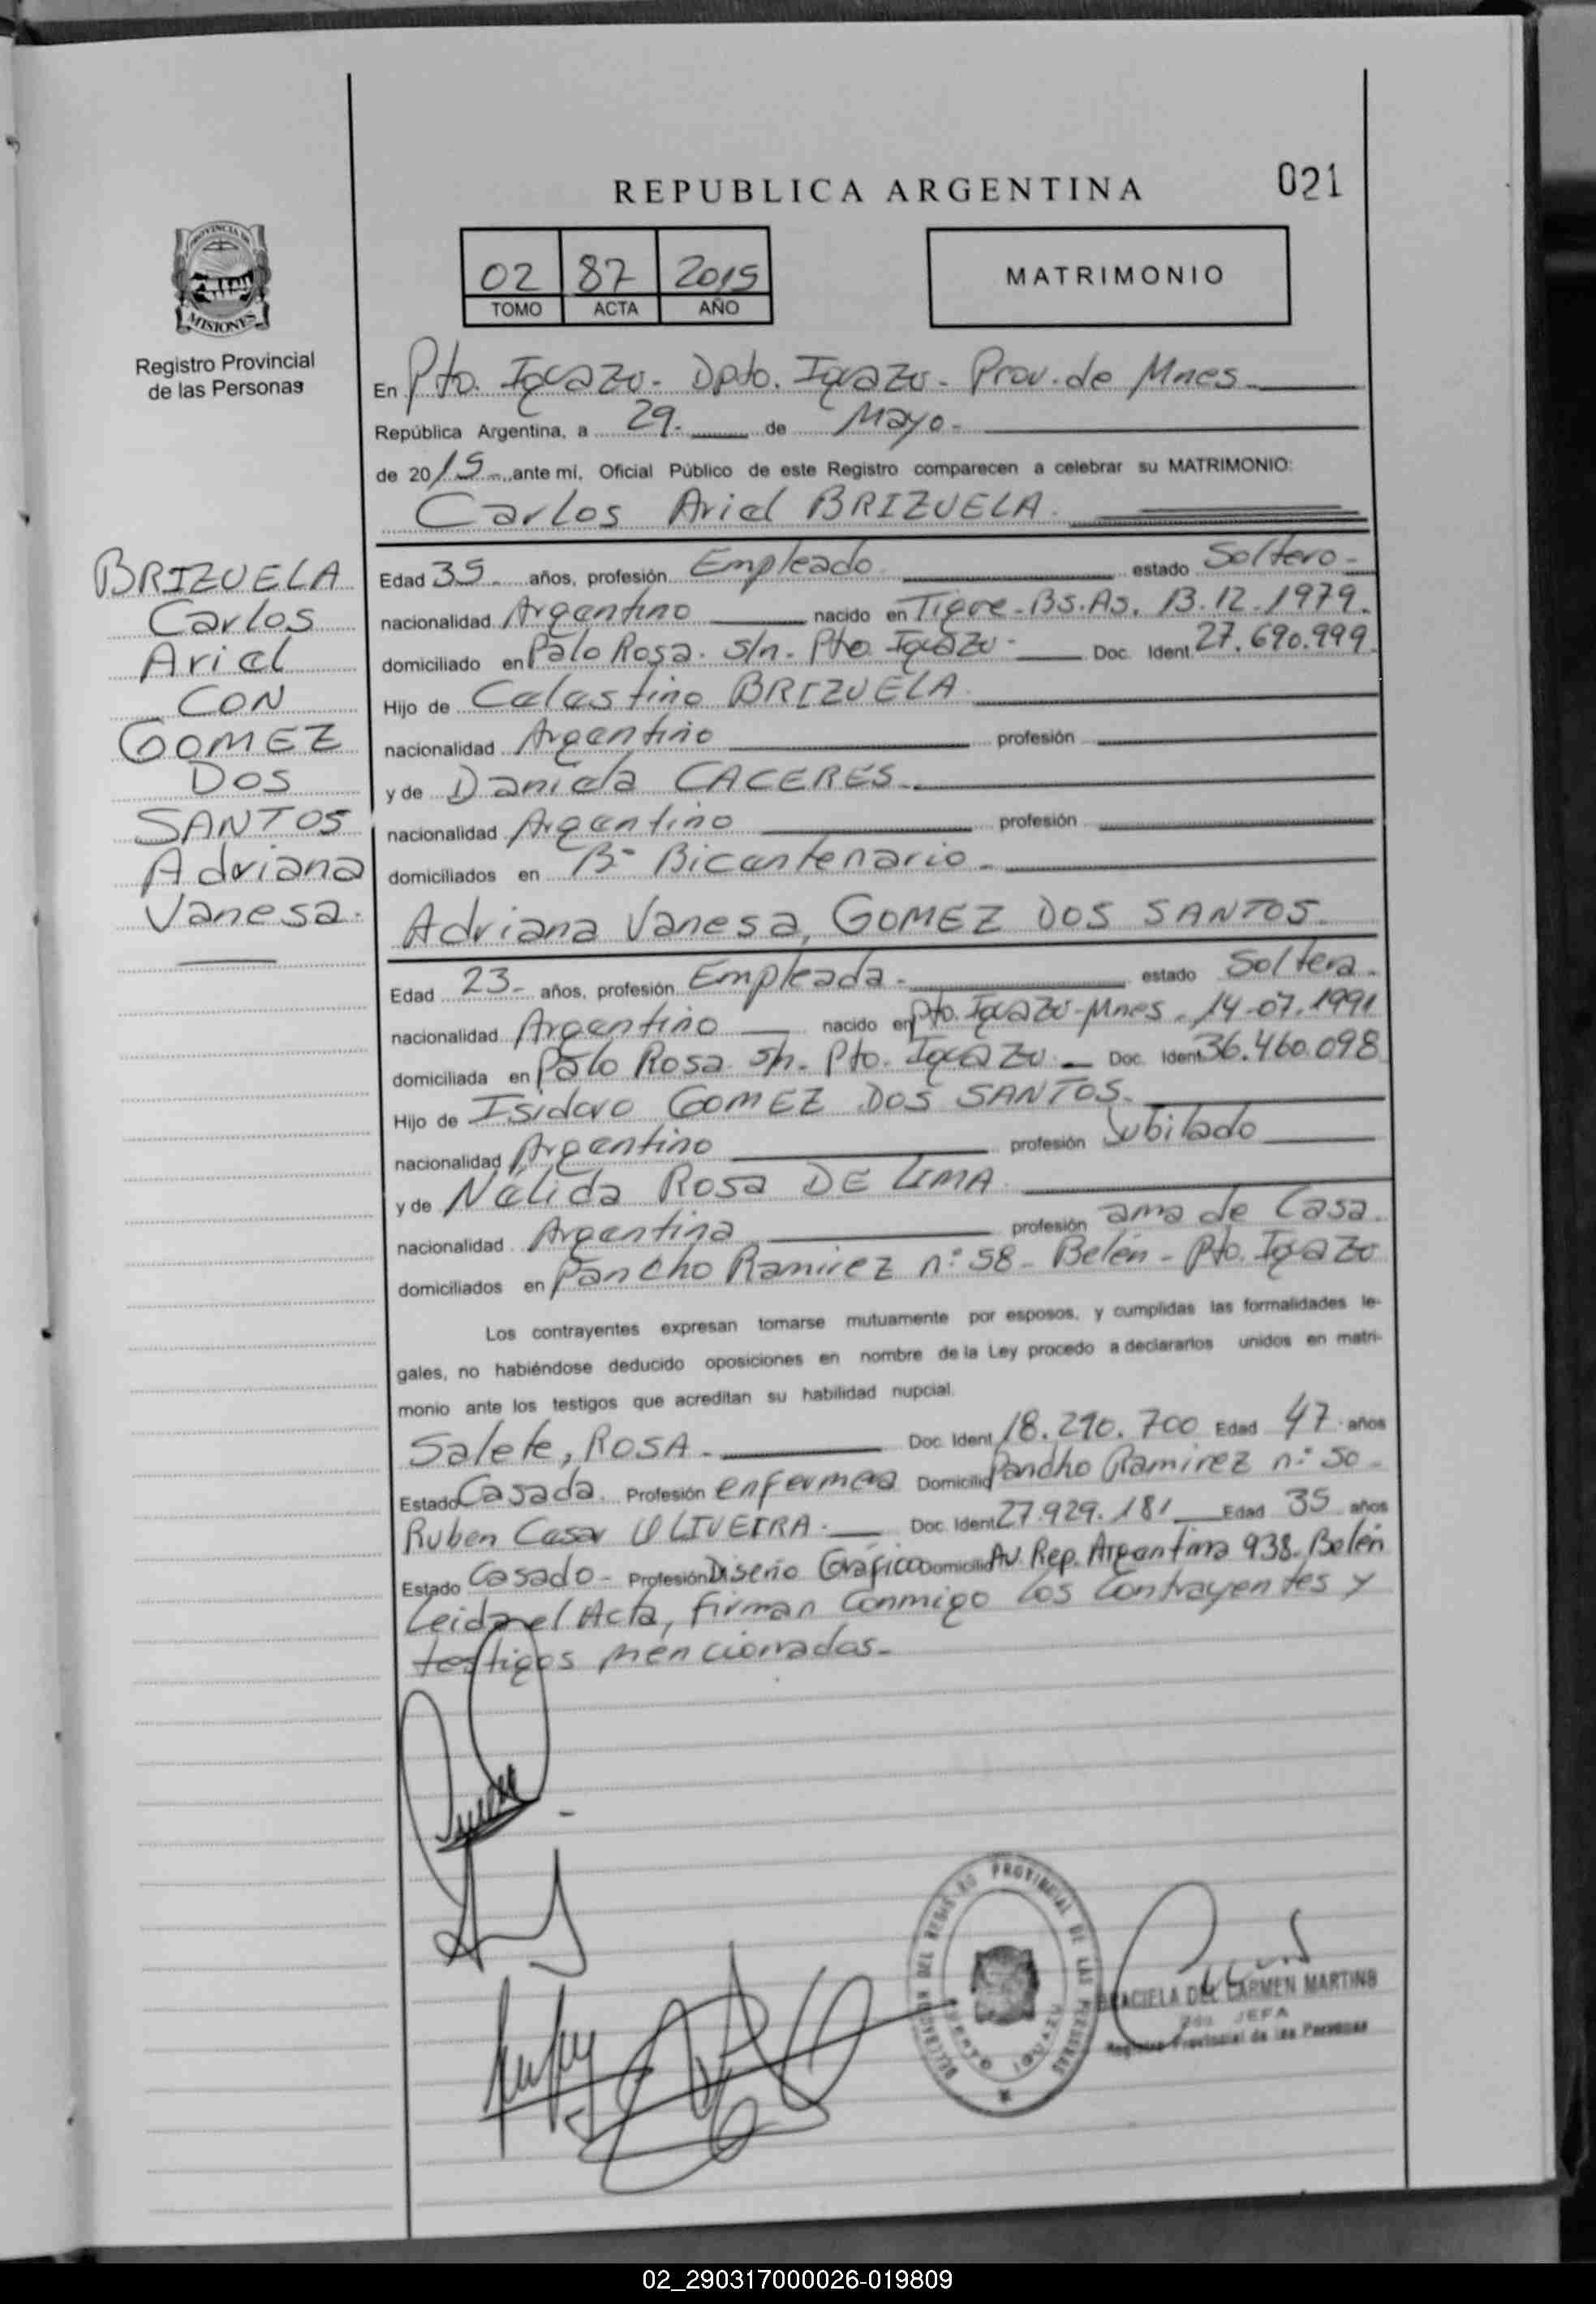 REPUBLICA ARGENTINA
021
PROVINCIA DE
MISIONES
Registro Provincial
de las Personas
02 87 2015
TOMO ACTA AÑO
MATRIMONIO
En Pto. Iguazu- Dpto. Iguazu- Prov. de Mnes
República Argentina, a 29- de Mayo-
de 2015-, ante mi, Oficial Público de este Registro comparecen a celebrar su MATRIMONIO:
Carlos Ariel BRIZUELA.
BRIZUELA
Carlos
Ariel
CON
GOMEZ
DOS
SANTOS
Adriana
Vanesa.
Edad 35- años, profesión Empleado estado Soltero-
nacionalidad Argentino nacido en Tigre-Bs.As. 13.12.1979.
domiciliado en Palo Rosa. s/n- Pto Iguazu- Doc. Ident. 27.690.999
Hijo de Celestino BRIZUELA
nacionalidad Argentino profesión
y de Daniela CACERES-
nacionalidad Argentino profesión
domiciliados en B- Bicentenario-
Adriana Vanesa, GOMEZ DOS SANTOS.
Edad 23- años, profesión Empleada- estado Soltera-
nacionalidad Argentino nacido en Pto. Iguazu-Mnes. 14-07.1991
domiciliada en Palo Rosa s/n- Pto. Iguazu Doc. Ident. 36.460.098
Hijo de Isidoro GOMEZ DOS SANTOS-
nacionalidad Argentino profesión Jubilado
y de Nelida Rosa DE LIMA
nacionalidad Argentina profesión ama de Casa.
domiciliados en Pancho Ramirez n: 58- Belén- Pto. Iguazu
Los contrayentes expresan tomarse mutuamente por esposos, y cumplidas las formalidades le-
gales, no habiéndose deducido oposiciones en nombre de la Ley procedo a declararlos unidos en matri-
monio ante los testigos que acreditan su habilidad nupcial.
Salete, ROSA- Doc. Ident. 18.290.700 Edad 47 años
Estado Casada. Profesión enfermera Domicilio Pancho Ramirez n: 50-
Ruben Cesar OLIVEIRA. Doc. Ident. 27.929.181 Edad 35 años
Estado Casado- Profesión Diseño Gráfico Domicilio Av. Rep. Argentina 938-Belén
Leida el Acta, firman conmigo los contrayentes y
testigos mencionados-
DELEGACION DEL REGISTRO PROVINCIAL DE LAS PERSONAS
PUERTO IGUAZU
GRACIELA DEL CARMEN MARTINS
2da. JEFA
Registro Provincial de las Personas
02_290317000026-019809